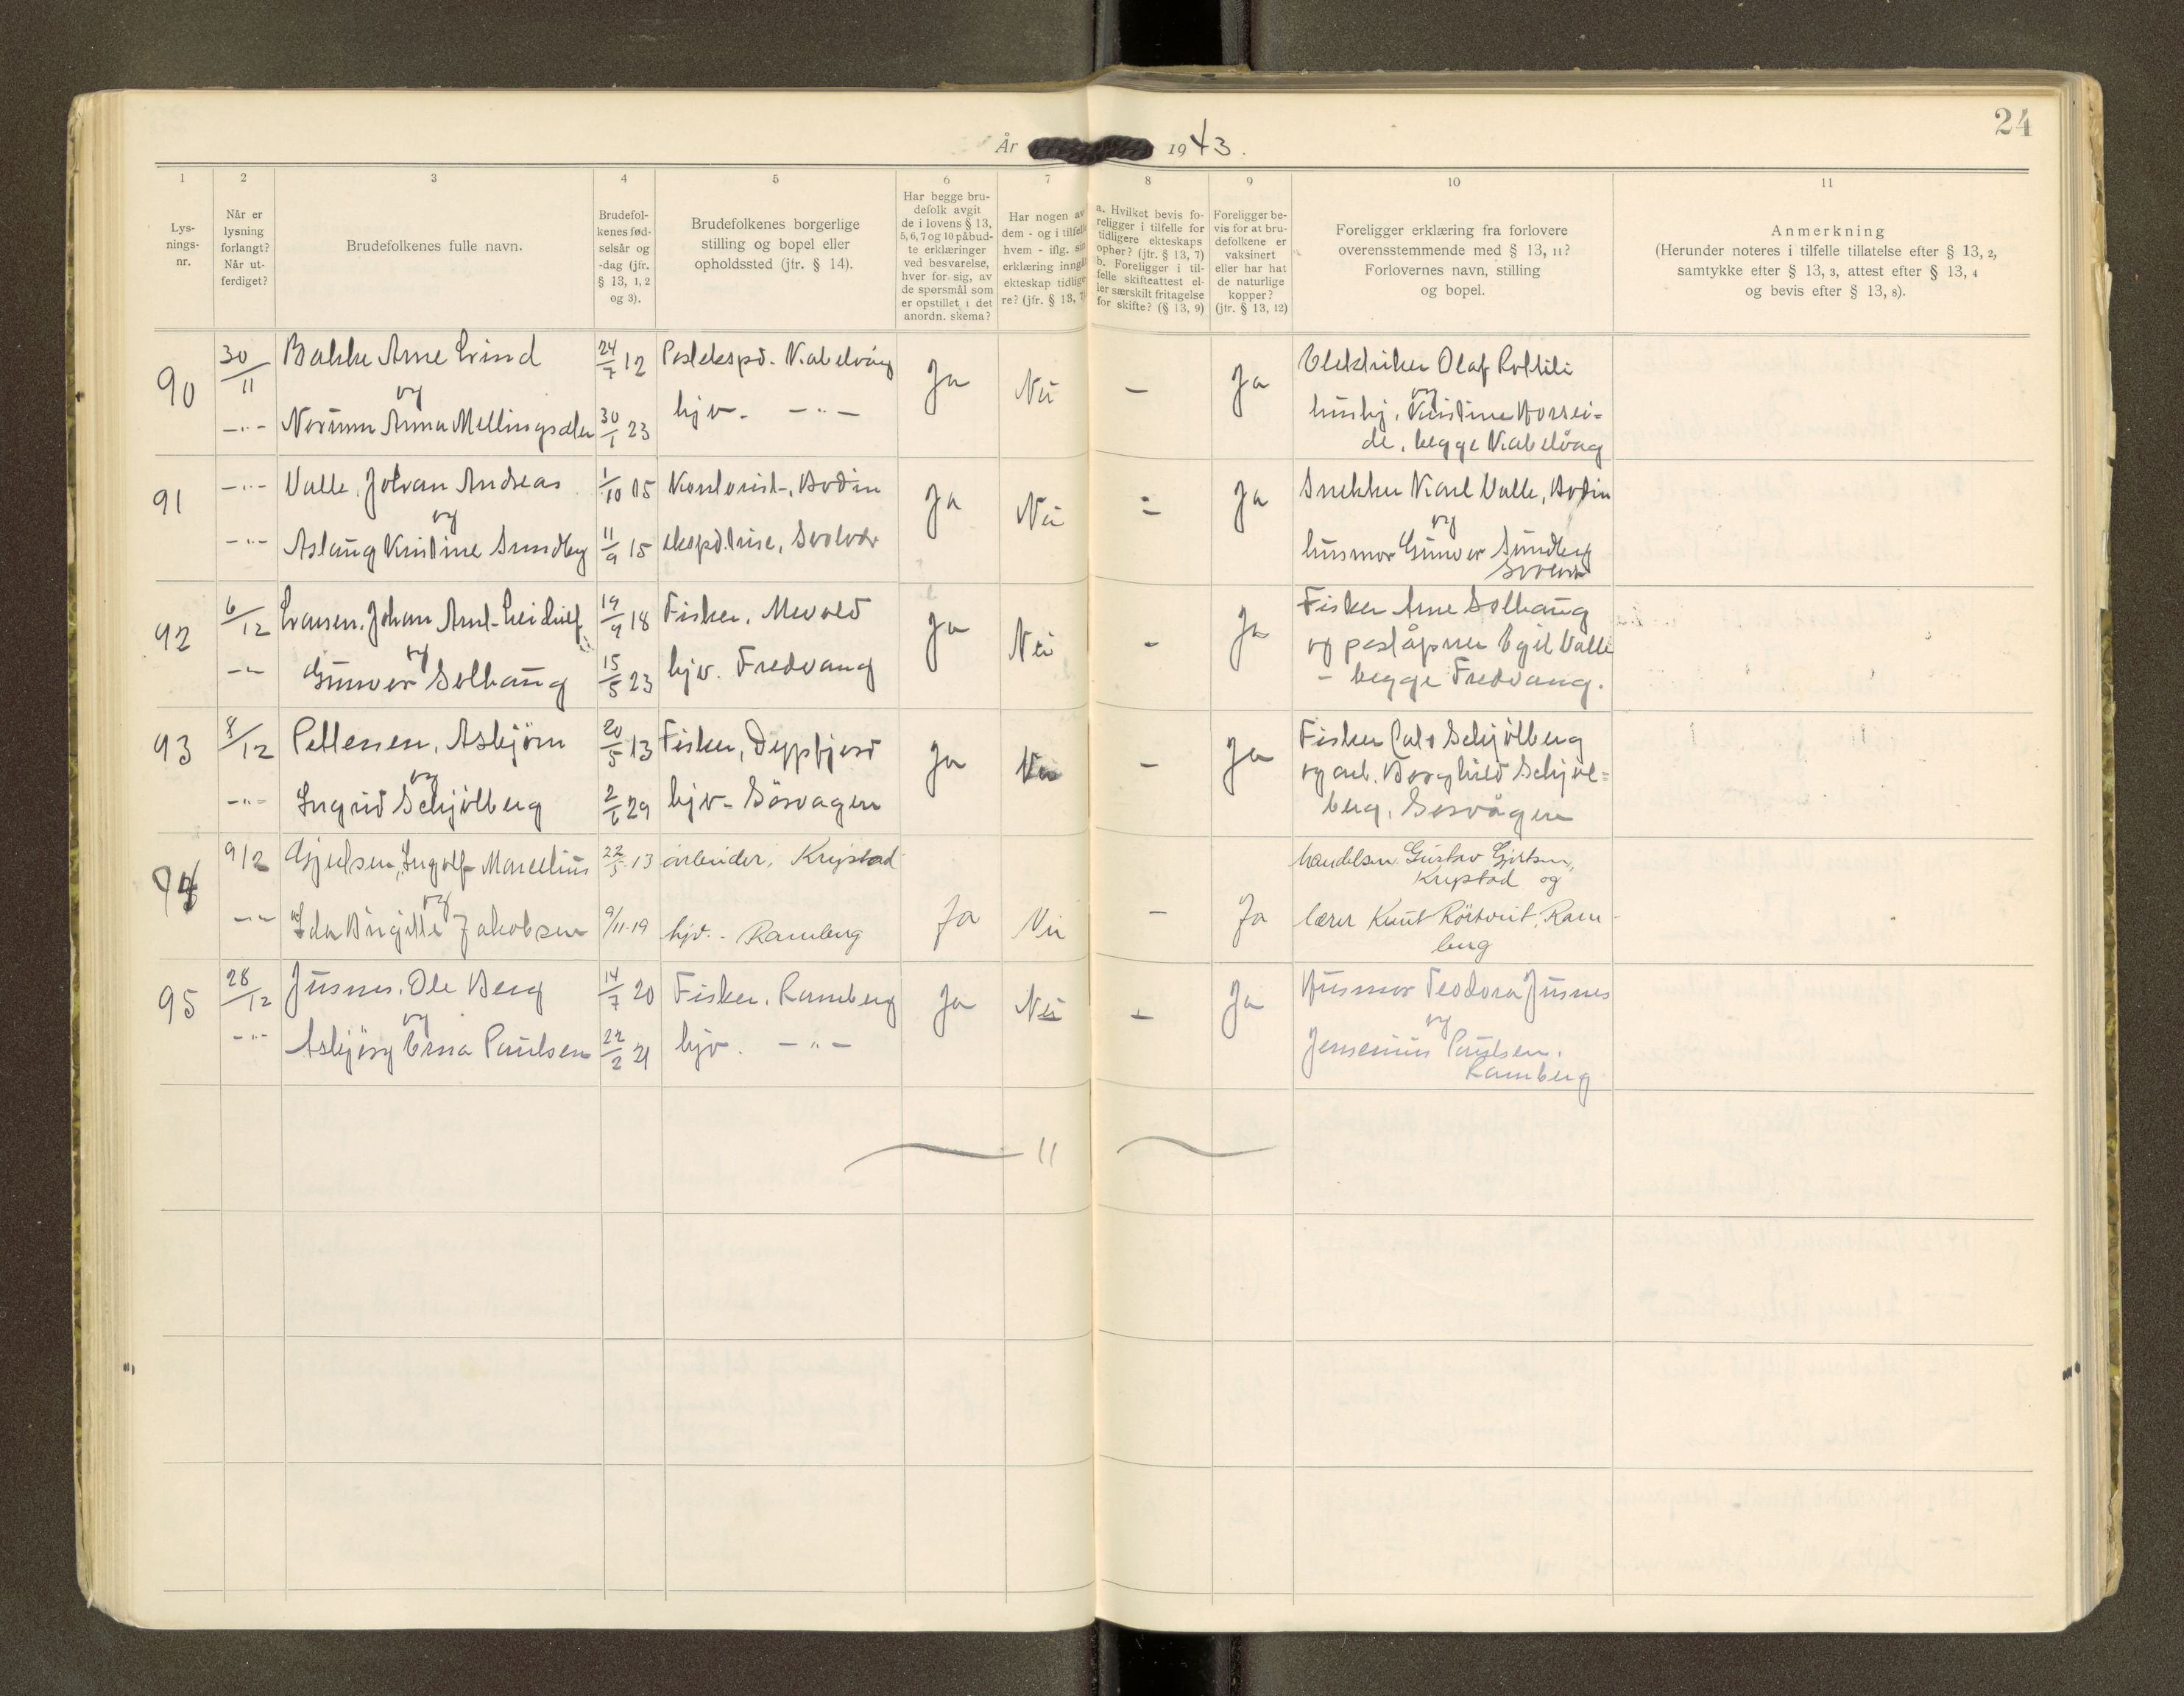 24
År 1943.
1 2 3 4 5 6 7 8 9 10 11
Lys-
nings-
nr.
Når er
lysning
forlangt?
Når ut-
ferdiget?
Brudefolkenes fulle navn.
Brudefol-
kenes fød-
selsår og
-dag (jfr.
§ 13, 1, 2
og 3).
Brudefolkenes borgerlige
stilling og bopel eller
opholdssted (jfr. § 14).
Har begge bru-
defolk avgit
de i lovens § 13,
5, 6, 7 og 10 påbud-
te erklæringer
ved besvarelse,
hver for sig, av
de spørsmål som
er opstillet i det
anordn. skema?
Har nogen av
dem - og i tilfelle
hvem - iflg. sin
erklæring inngå
ekteskap tidlige-
re? (jfr. § 13, 7)
a. Hvilket bevis fo-
religger i tilfelle for
tidligere ekteskaps
ophør? (jfr. § 13, 7)
b. Foreligger i til-
felle skifteattest el-
ler særskilt fritagelse
for skifte? (§ 13, 9)
Foreligger be-
vis for at bru-
defolkene er
vaksinert
eller har hat
de naturlige
kopper?
(jfr. § 13, 12)
Foreligger erklæring fra forlovere
overensstemmende med § 13, 11?
Forlovernes navn, stilling
og bopel.
Anmerkning
(Herunder noteres i tilfelle tillatelse efter § 13, 2,
samtykke efter § 13, 3, attest efter § 13, 4
og bevis efter § 13, 8).
90 30/11 Bakke Arne Eivind 24/7 12 Postekspd. Kabelvåg Ja Nei - Ja Elektriker Olaf Roltili
og
-"- Norumn Anna Mellingsæter 30/1 23 hjv. -"- hushj. Kristine Horsei=
de, begge Kabelvåg
91 -"- Valle, Johan Andreas 1/10 05 Kontorist, Bodin Ja Nei = Ja Snekker Karl Valle, Bodin
og
-"- Aslaug Kristine Sundby 11/9 15 ekspd.trise, Svolvær husmor Gunvor Sundby
Svolvær
92 6/12 Evansen, Johan Arnt Leidulf 19/9 18 Fisker, Mevold Ja Nei - Ja Fisker Arne Solhaug
og
og poståpner Egil Valle
-"- Gunvor Solhaug 15/5 23 hjv. Fredvang - begge Fredvang.
93 8/12 Pettersen, Asbjørn 20/5 13 Fisker, Dypfjord Ja Nei - Ja Fisker Schjølberg
og
og arb. Borghild Schjøl=
-"- Ingrid Schjølberg 2/6 29 hjv. Sørvagen berg, Sørvågen
94 9/12 Gjertsen, Ingolf Marcelius 22/5-13 arbeider, Krystad Ja Nei - Ja handelsm. Gustav Gjertsen,
Krystad og
og
-"- Ida Birgitte Jakobsen 9/11-19 hjv. - Ramberg lærer Knut Rörtveit, Ram-
berg
95 28/12 Jusnes, Ole Berg 14/7 20 Fisker, Ramberg Ja Nei - Ja Husmor Teodora Jusnes
og
-"- Asbjørg Erna Paulsen 22/2 21 hjv. -"- Jensenius Paulsen.
Ramberg